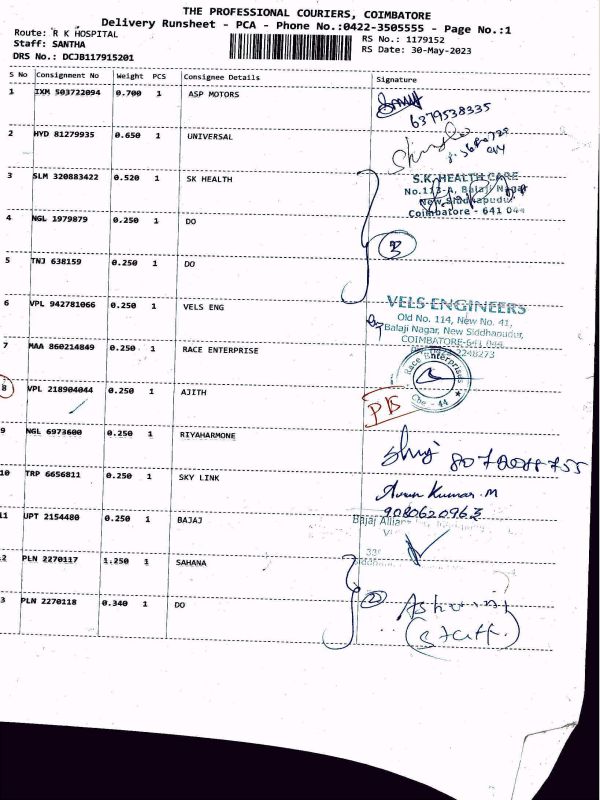 THE PROFESSIONAL COURIERS, COIMBATORE
Delivery Runsheet - PCA - Phone No.:0422-3505555 - Page No.:1
Route: R K HOSPITAL
Staff: SANTHA
DRS No.: DCJB117915201
RS No.: 1179152
RS Date: 30-May-2023
S No Consignment No Weight PCS Consignee Details Signature
1 IXM 503722094 0.700 1 ASP MOTORS
6379538335
2 HYD 81279935 0.650 1 UNIVERSAL
3 SLM 320883422 0.520 1 SK HEALTH
S.K. HEALTH CARE
No.113-A, Balaji Nagar
New Siddhapudur
Coimbatore - 641 044
4 NGL 1979879 0.250 1 DO
3
5 TNJ 638159 0.250 1 DO
6 VPL 942781066 0.250 1 VELS ENG
VELS ENGINEERS
Old No. 114, New No. 41,
Balaji Nagar, New Siddhapudur,
COIMBATORE-641 044.
2248273
7 MAA 860214849 0.250 1 RACE ENTERPRISE
Race Enterprises
Cbe - 44
8 VPL 218904044 0.250 1 AJITH
PB
9 NGL 6973600 0.250 1 RIYAHARMONE
8072088755
10 TRP 6656811 0.250 1 SKY LINK
Arun Kumar. M
9080620963
11 UPT 2154480 0.250 1 BAJAJ
Bajaj Allianz
2 PLN 2270117 1.250 1 SAHANA
3 PLN 2270118 0.340 1 DO
2
(Staff.)